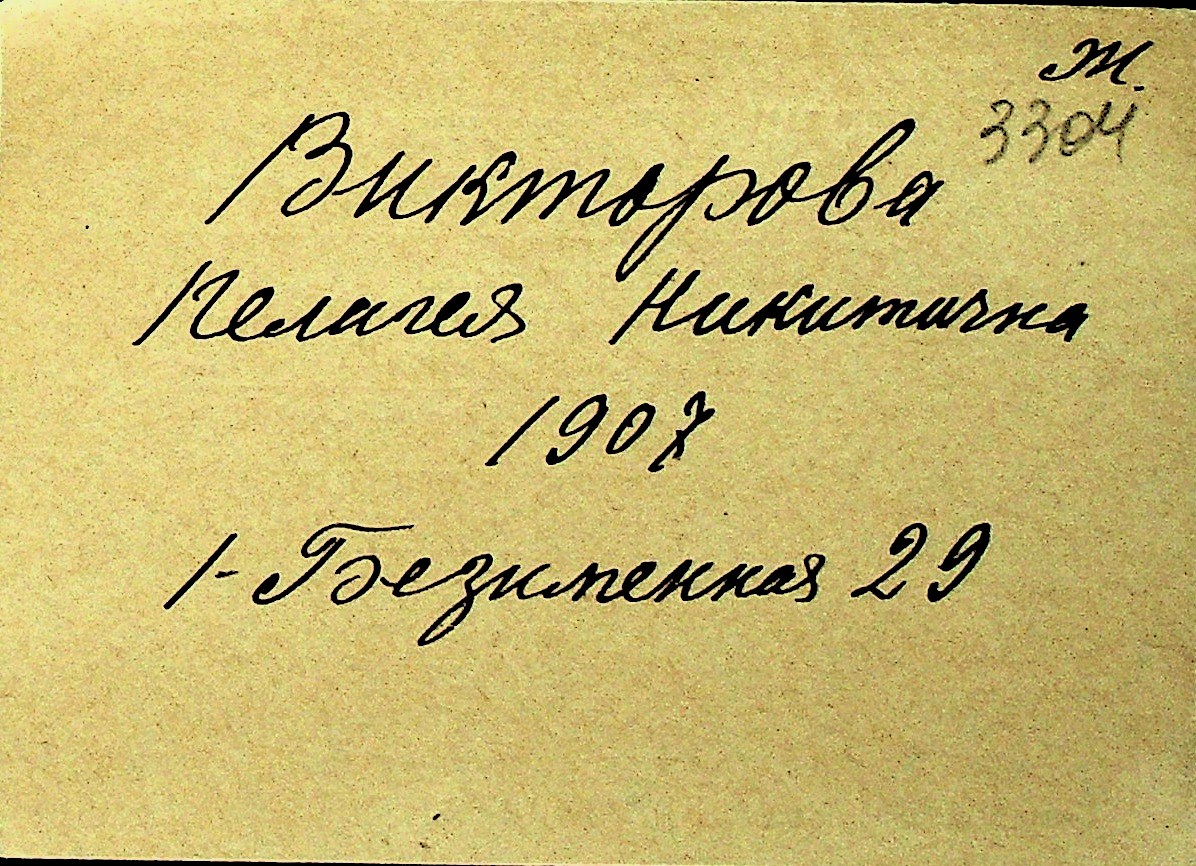 Ж.
3304
Викторова
Пелагея Никитична
1907
1-Безименная 29